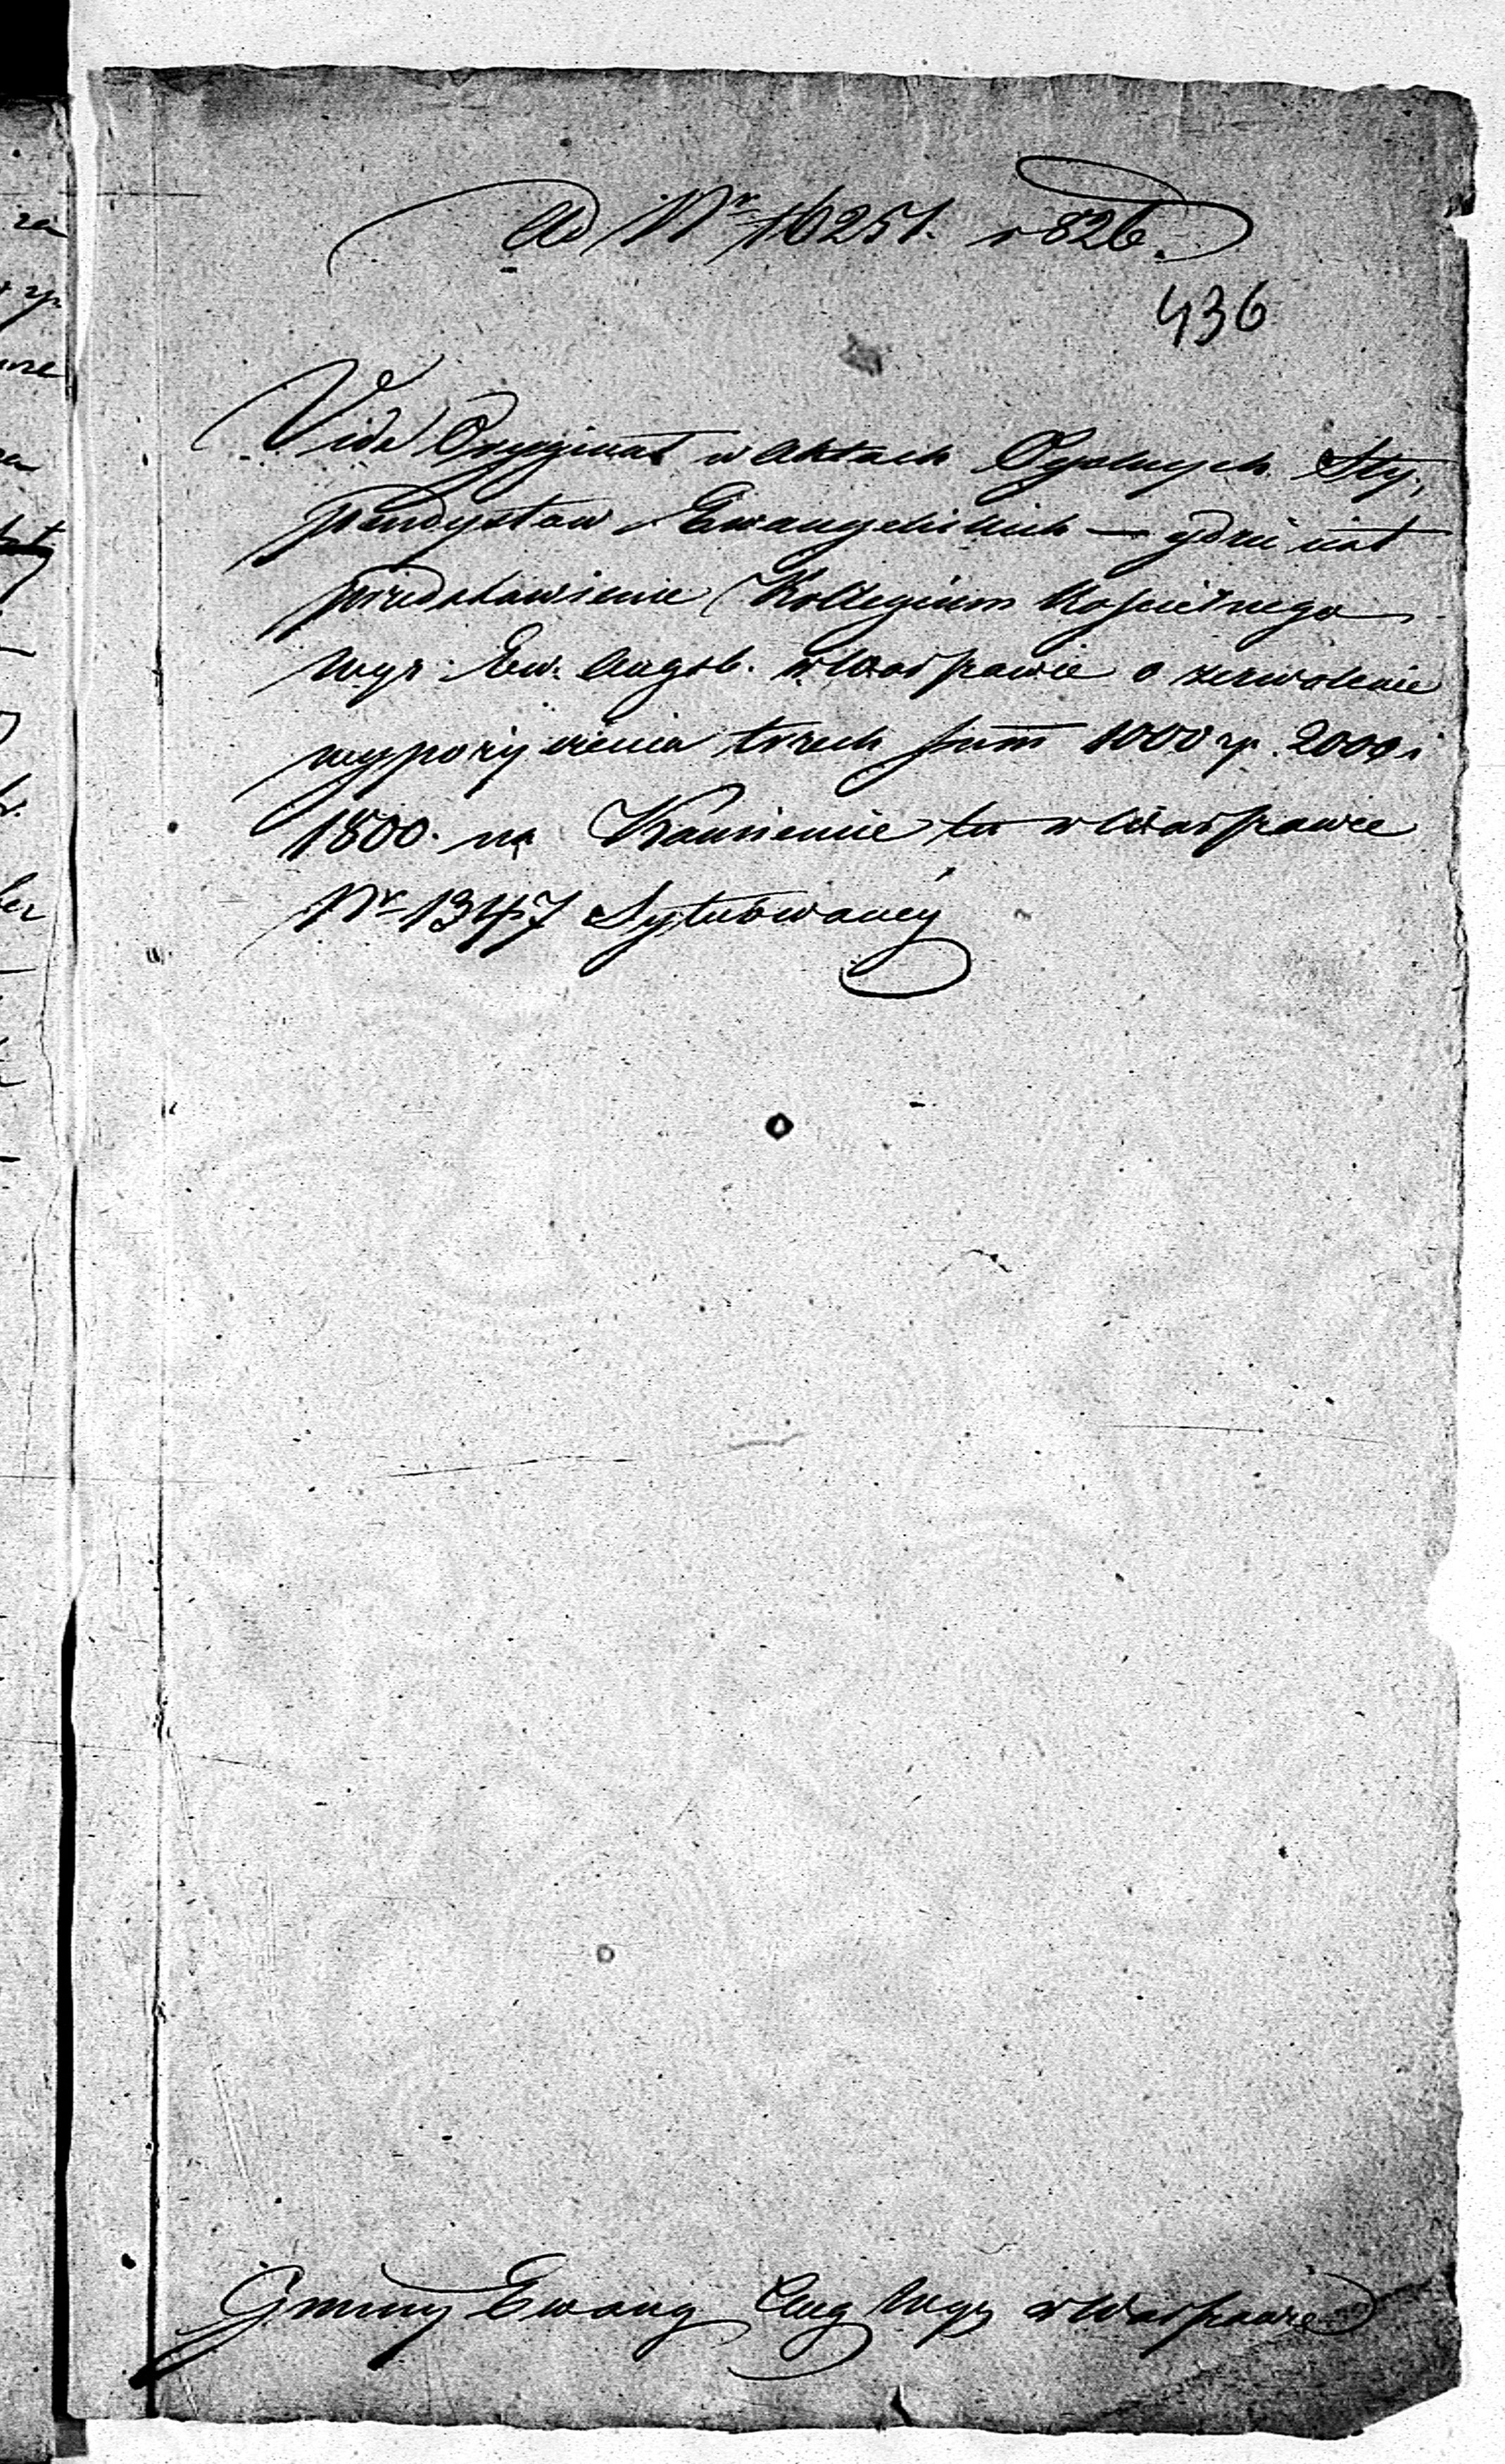 Ad Nr 16251. r 826.
436
Vide Oryginał w Aktach Ogolnych Sty-
pendystow Ewangelickich — gdzie iest
przedstawienie Kollegium Kościelnego
wyz. Ew. Augsb. w Warszawie o zezwolenie
wypożyczenia trzech summ 1000 zp. 2000 i
1800. na Kamienicę tu w Warszawie
Nr 1347 Sytuowaney
Gminy Ewang Aug Wyz w Warszawie